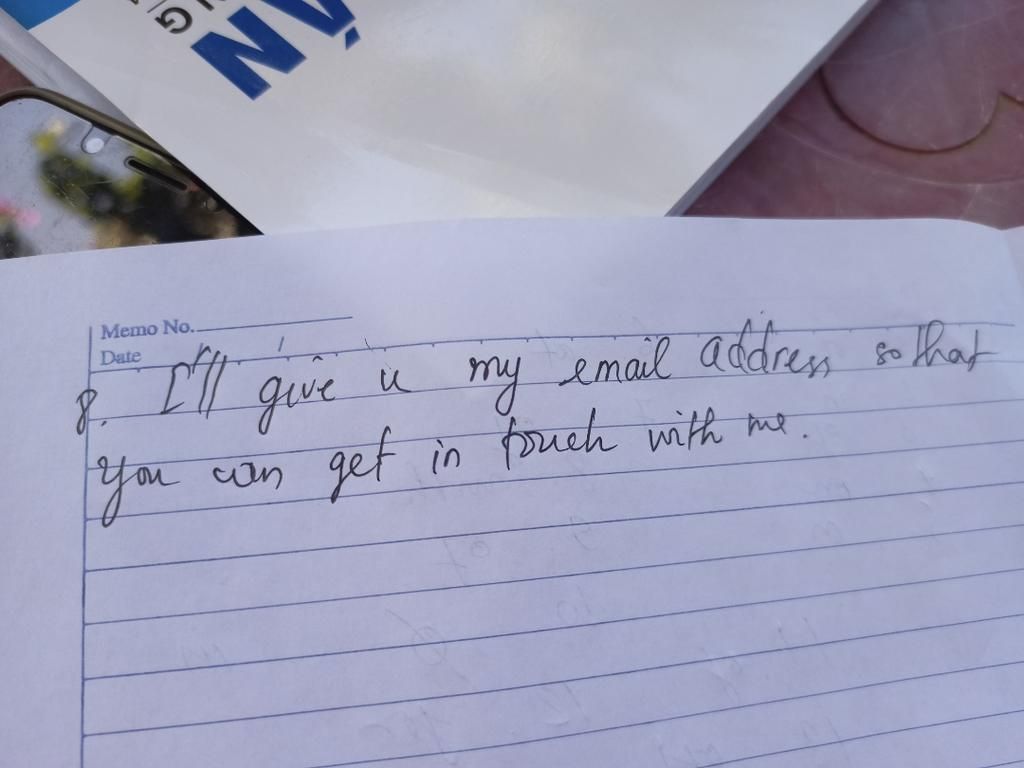 ẬN
NG
Memo No.
Date
8. I'll give u my email address so that
you can get in touch with me.